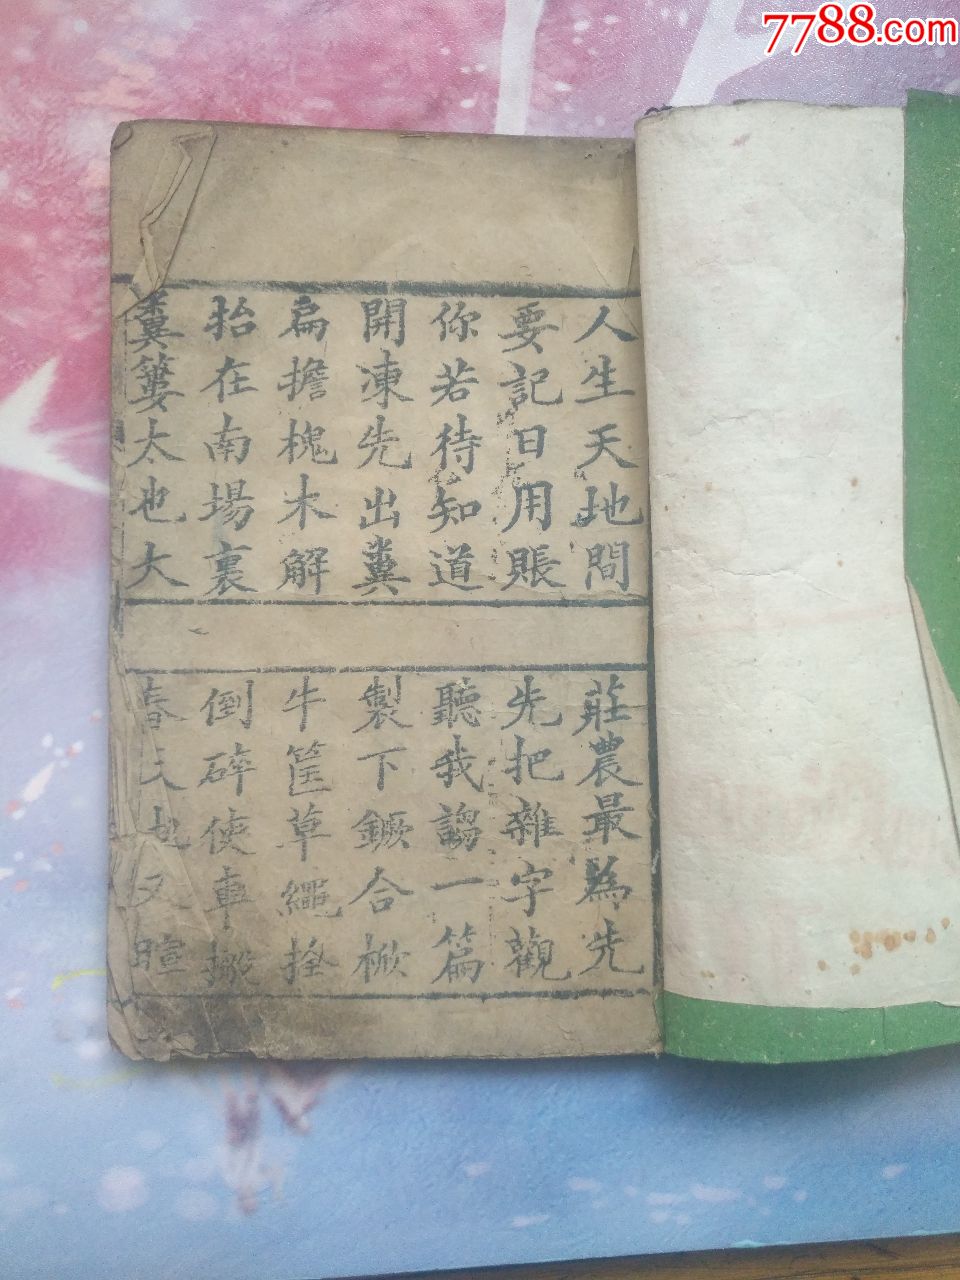 7788.com
人生天地間
莊農最為先
要記日用賬
先把雜字觀
你若待知道
聽我謅一篇
開凍先出糞
製下鐝合杴
扁擔槐木解
牛筐草繩拴
抬在南場裏
倒碎使車搬
糞簍太也大
春天地又暄